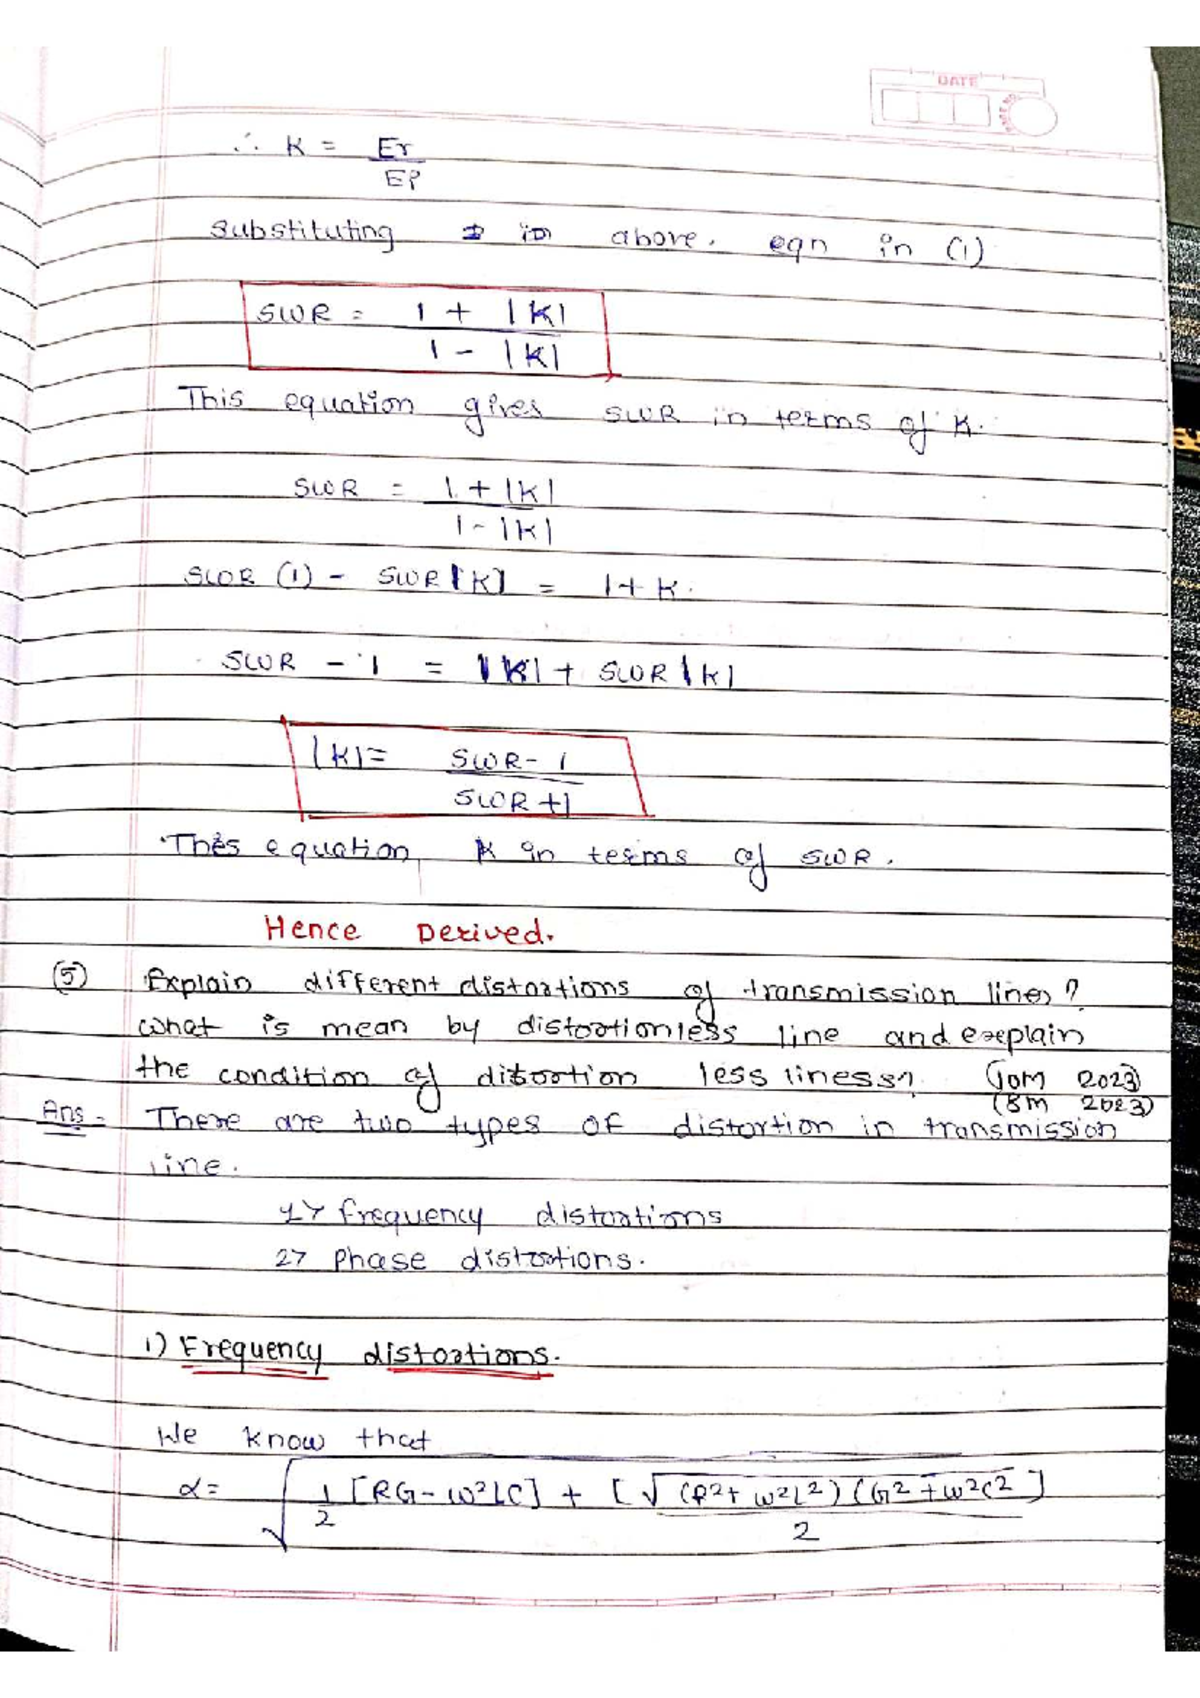 DATE
∴ K = Er
EP
substituting in above. eqn in (1)
SWR = 1 + |K|
1 - |K|
This equation gives SWR in terms of K.
SWR = 1 + |K|
1 - |K|
SWR (1) - SWR [K] = 1 + K.
SWR - 1 = |K| + SWR |K|
|K| = SWR - 1
SWR + 1
Thes equation K in terms of SWR.
Hence Derived.
(5) Explain different distortions of transmission lines?
what is mean by distortionless line and explain
the condition of distortion less liness? (10M 2023)
(8M 2023)
Ans - There are two types of distortion in transmission
line.
1> frequency distortions
2> Phase distortions.
1) Frequency distortions.
We know that
α = √ 1/2 [RG - ω²LC] + [√(R² + ω²L²) (G² + ω²C²)]
2